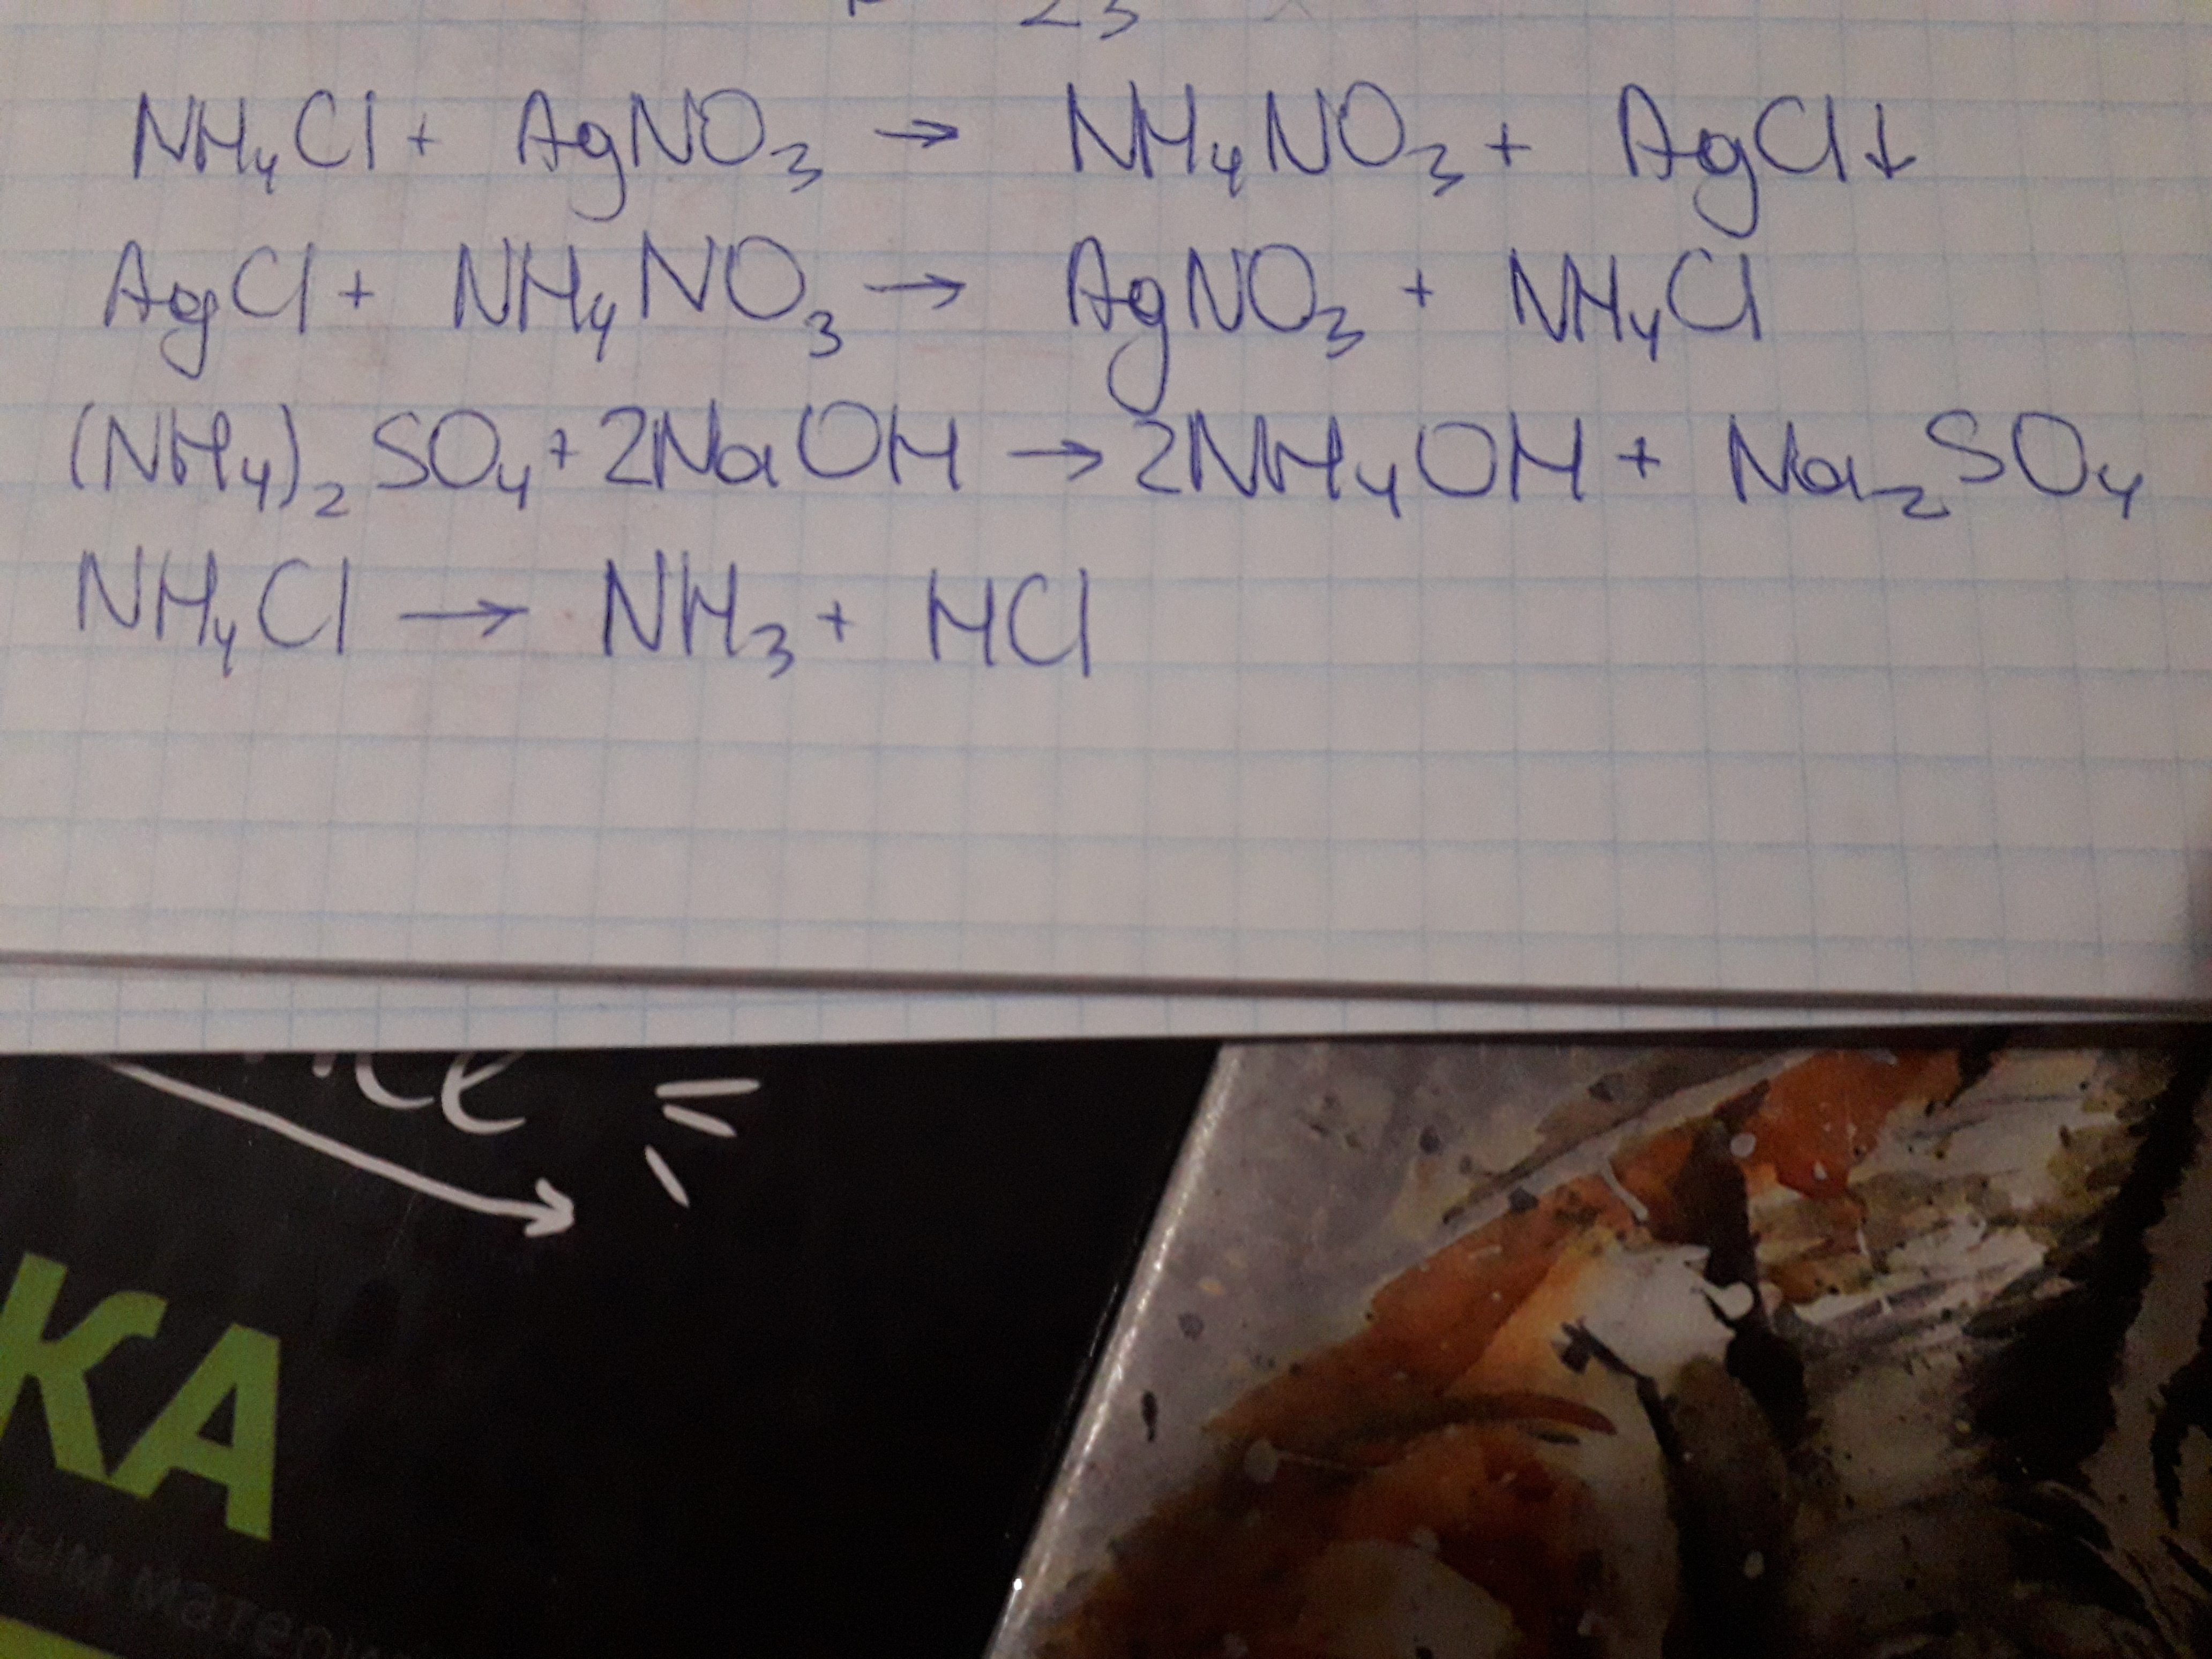 23
NH₄Cl + AgNO₃ → NH₄NO₃ + AgCl↓
AgCl + NH₄NO₃ → AgNO₃ + NH₄Cl
(NH₄)₂SO₄ + 2NaOH → 2NH₄OH + Na₂SO₄
NH₄Cl → NH₃ + HCl
КА